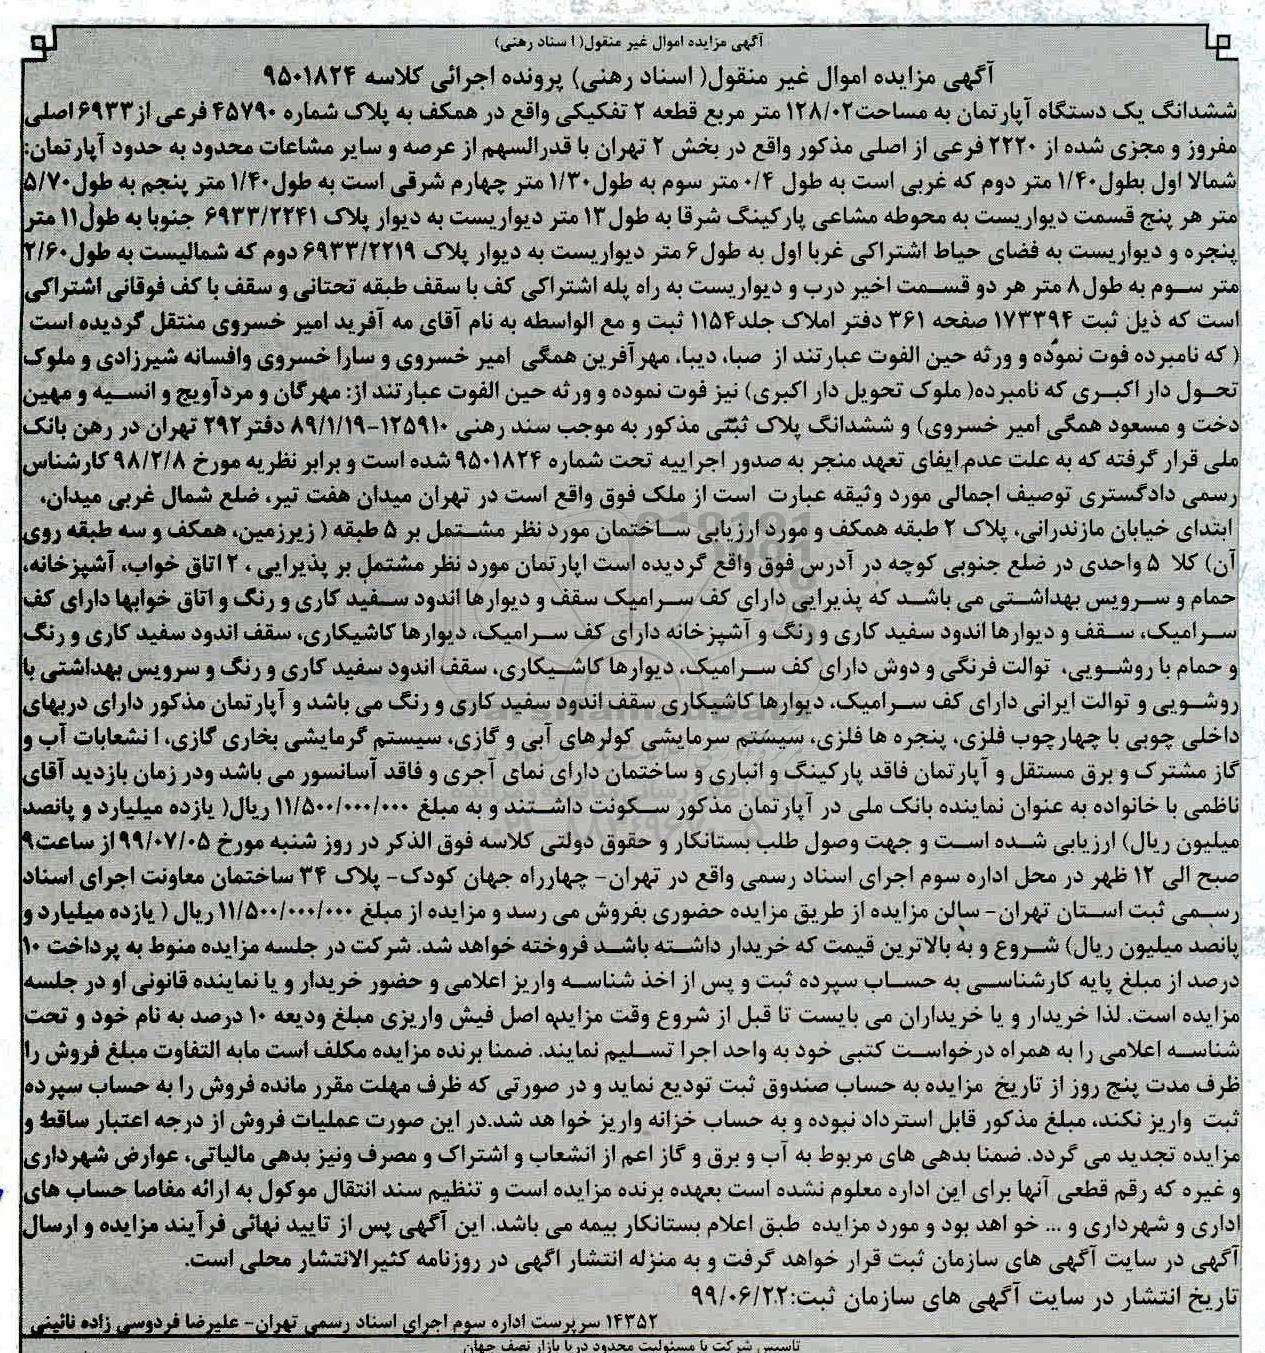 آگهی مزایده اموال غیر منقول( ا سناد رهنی)
آگهی مزایده اموال غیر منقول( اسناد رهنی) پرونده اجرائی کلاسه ۹۵۰۱۸۲۴
ششدانگ یک دستگاه آپارتمان به مساحت۱۲۸/۰۲ متر مربع قطعه ۲ تفکیکی واقع در همکف به پلاک شماره ۴۵۷۹۰ فرعی از۶۹۳۳ اصلی
مفروز و مجزی شده از ۲۲۲۰ فرعی از اصلی مذکور واقع در بخش ۲ تهران با قدرالسهم از عرصه و سایر مشاعات محدود به حدود آپارتمان:
شمالا اول بطول۱/۴۰ متر دوم که غربی است به طول ۰/۴ متر سوم به طول۱/۳۰ متر چهارم شرقی است به طول۱/۴۰ متر پنجم به طول۵/۷۰
متر هر پنج قسمت دیواریست به محوطه مشاعی پارکینگ شرقا به طول۱۳ متر دیواریست به دیوار پلاک ۶۹۳۳/۲۲۴۱ جنوبا به طول۱۱ متر
پنجره و دیواریست به فضای حیاط اشتراکی غربا اول به طول۶ متر دیواریست به دیوار پلاک ۶۹۳۳/۲۲۱۹ دوم که شمالیست به طول۲/۶۰
متر سوم به طول۸ متر هر دو قسمت اخیر درب و دیواریست به راه پله اشتراکی کف با سقف طبقه تحتانی و سقف با کف فوقانی اشتراکی
است که ذیل ثبت ۱۷۳۳۹۴ صفحه ۳۶۱ دفتر املاک جلد۱۱۵۴ ثبت و مع الواسطه به نام آقای مه آفرید امیر خسروی منتقل گردیده است
( که نامبرده فوت نموده و ورثه حین الفوت عبارتند از صبا، دیبا، مهرآفرین همگی امیر خسروی و سارا خسروی وافسانه شیرزادی و ملوک
تحول دار اکبری که نامبرده( ملوک تحویل دار اکبری) نیز فوت نموده و ورثه حین الفوت عبارتند از: مهرگان و مردآویج و انسیه و مهین
دخت و مسعود همگی امیر خسروی) و ششدانگ پلاک ثبتی مذکور به موجب سند رهنی ۱۲۵۹۱۰-۸۹/۱/۱۹ دفتر۲۹۲ تهران در رهن بانک
ملی قرار گرفته که به علت عدم ایفای تعهد منجر به صدور اجراییه تحت شماره ۹۵۰۱۸۲۴ شده است و برابر نظریه مورخ ۹۸/۲/۸ کارشناس
رسمی دادگستری توصیف اجمالی مورد وثیقه عبارت است از ملک فوق واقع است در تهران میدان هفت تیر، ضلع شمال غربی میدان،
ابتدای خیابان مازندرانی، پلاک ۲ طبقه همکف و مورد ارزیابی ساختمان مورد نظر مشتمل بر ۵ طبقه ( زیرزمین، همکف و سه طبقه روی
آن) کلا ۵ واحدی در ضلع جنوبی کوچه در آدرس فوق واقع گردیده است اپارتمان مورد نظر مشتمل بر پذیرایی ، ۲ اتاق خواب، آشپزخانه،
حمام و سرویس بهداشتی می باشد که پذیرایی دارای کف سرامیک سقف و دیوارها اندود سفید کاری و رنگ و اتاق خوابها دارای کف
سرامیک، سقف و دیوارها اندود سفید کاری و رنگ و آشپزخانه دارای کف سرامیک، دیوارها کاشیکاری، سقف اندود سفید کاری و رنگ
و حمام با روشویی، توالت فرنگی و دوش دارای کف سرامیک، دیوارها کاشیکاری، سقف اندود سفید کاری و رنگ و سرویس بهداشتی با
روشویی و توالت ایرانی دارای کف سرامیک، دیوارها کاشیکاری سقف اندود سفید کاری و رنگ می باشد و آپارتمان مذکور دارای دربهای
داخلی چوبی با چهارچوب فلزی، پنجره ها فلزی، سیستم سرمایشی کولرهای آبی و گازی، سیستم گرمایشی بخاری گازی، ا نشعابات آب و
گاز مشترک و برق مستقل و آپارتمان فاقد پارکینگ و انباری و ساختمان دارای نمای آجری و فاقد آسانسور می باشد ودر زمان بازدید آقای
ناظمی با خانواده به عنوان نماینده بانک ملی در آپارتمان مذکور سکونت داشتند و به مبلغ ۱۱/۵۰۰/۰۰۰/۰۰۰ ریال( یازده میلیارد و پانصد
میلیون ریال) ارزیابی شده است و جهت وصول طلب بستانکار و حقوق دولتی کلاسه فوق الذکر در روز شنبه مورخ ۹۹/۰۷/۰۵ از ساعت۹
صبح الی ۱۲ ظهر در محل اداره سوم اجرای اسناد رسمی واقع در تهران- چهارراه جهان کودک- پلاک ۳۴ ساختمان معاونت اجرای اسناد
رسمی ثبت استان تهران- سالن مزایده از طریق مزایده حضوری بفروش می رسد و مزایده از مبلغ ۱۱/۵۰۰/۰۰۰/۰۰۰ ریال ( یازده میلیارد و
پانصد میلیون ریال) شروع و به بالاترین قیمت که خریدار داشته باشد فروخته خواهد شد. شرکت در جلسه مزایده منوط به پرداخت ۱۰
درصد از مبلغ پایه کارشناسی به حساب سپرده ثبت و پس از اخذ شناسه واریز اعلامی و حضور خریدار و یا نماینده قانونی او در جلسه
مزایده است. لذا خریدار و یا خریداران می بایست تا قبل از شروع وقت مزایده اصل فیش واریزی مبلغ ودیعه ۱۰ درصد به نام خود و تحت
شناسه اعلامی را به همراه درخواست کتبی خود به واحد اجرا تسلیم نمایند. ضمنا برنده مزایده مکلف است مابه التفاوت مبلغ فروش را
ظرف مدت پنج روز از تاریخ مزایده به حساب صندوق ثبت تودیع نماید و در صورتی که ظرف مهلت مقرر مانده فروش را به حساب سپرده
ثبت واریز نکند، مبلغ مذکور قابل استرداد نبوده و به حساب خزانه واریز خوا هد شد.در این صورت عملیات فروش از درجه اعتبار ساقط و
مزایده تجدید می گردد. ضمنا بدهی های مربوط به آب و برق و گاز اعم از انشعاب و اشتراک و مصرف ونیز بدهی مالیاتی، عوارض شهرداری
و غیره که رقم قطعی آنها برای این اداره معلوم نشده است بعهده برنده مزایده است و تنظیم سند انتقال موکول به ارائه مفاصا حساب های
اداری و شهرداری و ... خو اهد بود و مورد مزایده طبق اعلام بستانکار بیمه می باشد. این آگهی پس از تایید نهائی فرآیند مزایده و ارسال
آگهی در سایت آگهی های سازمان ثبت قرار خواهد گرفت و به منزله انتشار اگهی در روزنامه کثیرالانتشار محلی است.
تاریخ انتشار در سایت آگهی های سازمان ثبت:۹۹/۰۶/۲۲
۱۴۳۵۲ سرپرست اداره سوم اجرای اسناد رسمی تهران- علیرضا فردوسی زاده نائینی
تاسیس شرکت با مسئولیت محدود دریا بازار نصف جهان